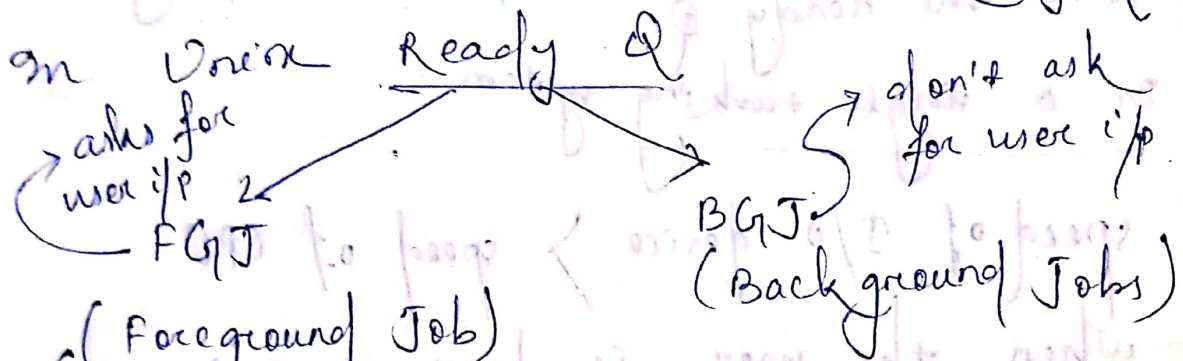 In Unix Ready Q
asks for
user i/p
don't ask
for user i/p
FGJ
BGJ
(Foreground Job)
(Background Jobs)